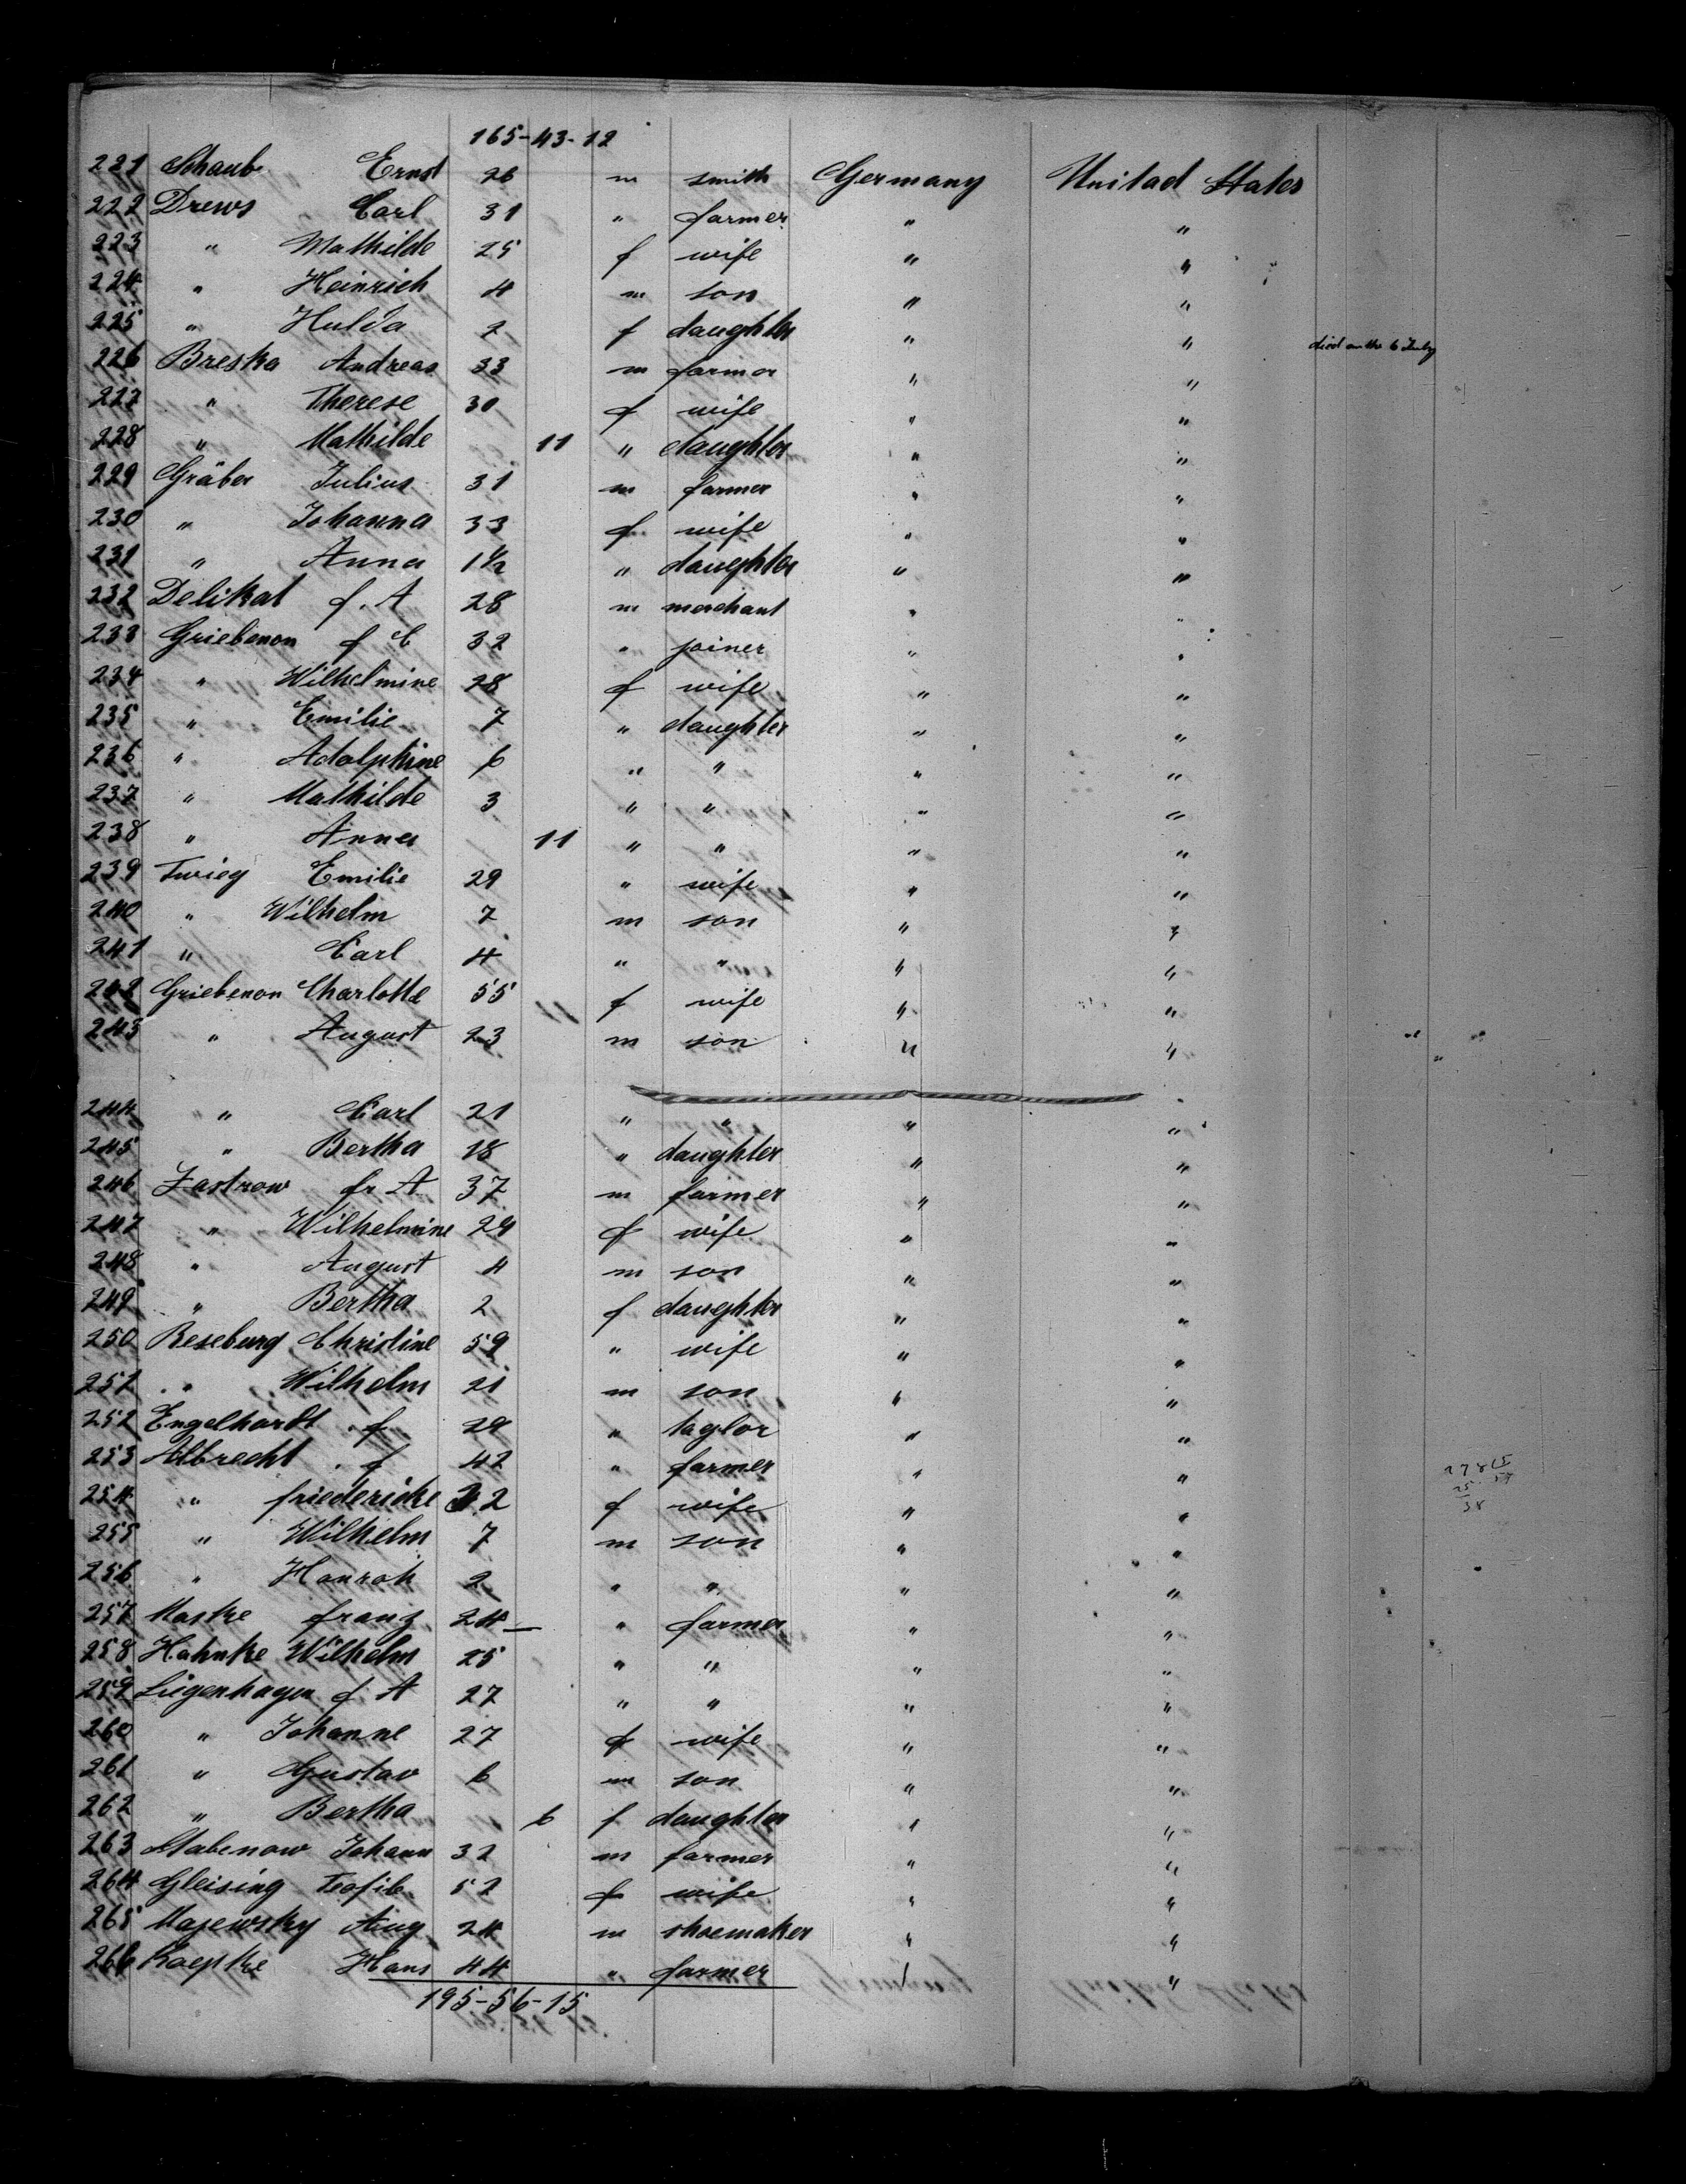 165-43-12
221 Schaub Ernst 26 m smith Germany Unitad States
222 Drews Carl 31 " farmer " "
223 " Mathilde 25 f wife " "
224 " Heinrich 4 m son " "
225 " Hulda 2 f daughter " " died on the 6 July
226 Breska Andreas 33 m farmer " "
227 " Therese 30 f wife " "
228 " Mathilde 11 " daughter " "
229 Gräber Julius 31 m farmer " "
230 " Johanna 33 f wife " "
231 " Anna 1½ " daughter " "
232 Delikat f. A 28 m merchant " "
233 Griebenon f C 32 " joiner " "
234 " Wilhelmine 28 f wife " "
235 " Emilie 7 " daughter " "
236 " Adolphine 6 " " " "
237 " Mathilde 3 " " " "
238 " Anna 11 " " " "
239 Twieg Emilie 29 " wife " "
240 " Wilhelm 7 m son " "
241 " Carl 4 " " " "
242 Griebenon Charlotte 55 f wife " "
243 " August 23 m son " "
244 " Carl 21 " " " "
245 " Bertha 18 " daughter " "
246 Zastrow fr A 37 m farmer " "
247 " Wilhelmine 29 f wife " "
248 " August 4 m son " "
249 " Bertha 2 f daughter " "
250 Reseburg Christine 59 " wife " "
251 " Wilhelm 21 m son " "
252 Engelhardt f 29 " taylor " "
253 Albrecht f 42 " farmer " "
254 " friedericke 32 f wife " "
255 " Wilhelm 7 m son " "
256 " 2 " " " "
257 Maske franz 24 " farmer " "
258 Hahnke Wilhelm 25 " " " "
259 Liegenhagen f. A 27 " " " "
260 " Johanne 27 f wife " "
261 " Gustav 6 m son " "
262 " Bertha 6 f daughter " "
263 Stabenow Johann 32 m farmer " "
264 Gleising 52 f wife " "
265 Majewsky Aug 24 m shoemaker " "
266 Koepke Hans 44 " farmer " "
195-56-15